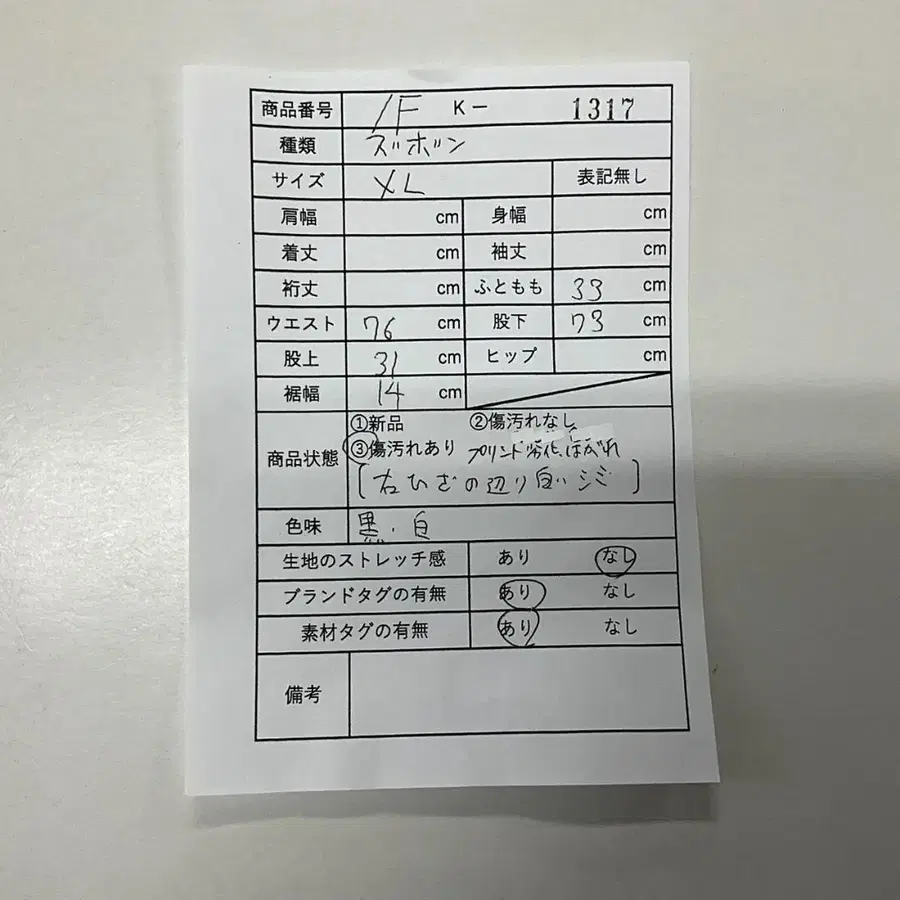 商品番号 1F K- 1317
種類 ズボン
サイズ XL 表記無し
肩幅 cm 身幅 cm
着丈 cm 袖丈 cm
裄丈 cm ふともも 33 cm
ウエスト 76 cm 股下 73 cm
股上 31 cm ヒップ cm
裾幅 14 cm
①新品 ②傷汚れなし
商品状態 ③傷汚れあり プリント劣化、はがれ
[右ひざの辺り白いシミ]
色味 黒・白
生地のストレッチ感 あり なし
ブランドタグの有無 あり なし
素材タグの有無 あり なし
備考